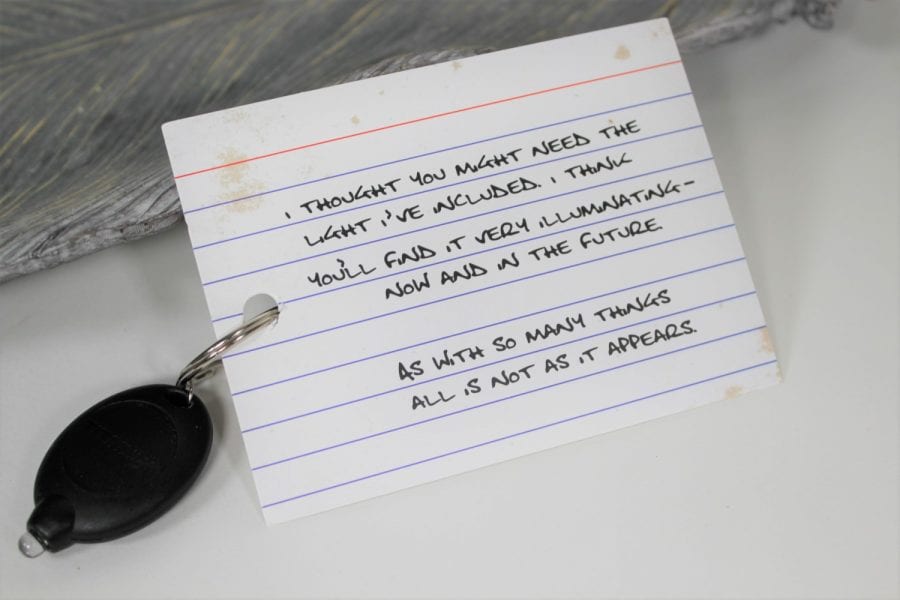 I THOUGHT YOU MIGHT NEED THE
LIGHT I'VE INCLUDED. I THINK
YOU'LL FIND IT VERY ILLUMINATING-
NOW AND IN THE FUTURE.
AS WITH SO MANY THINGS
ALL IS NOT AS IT APPEARS.